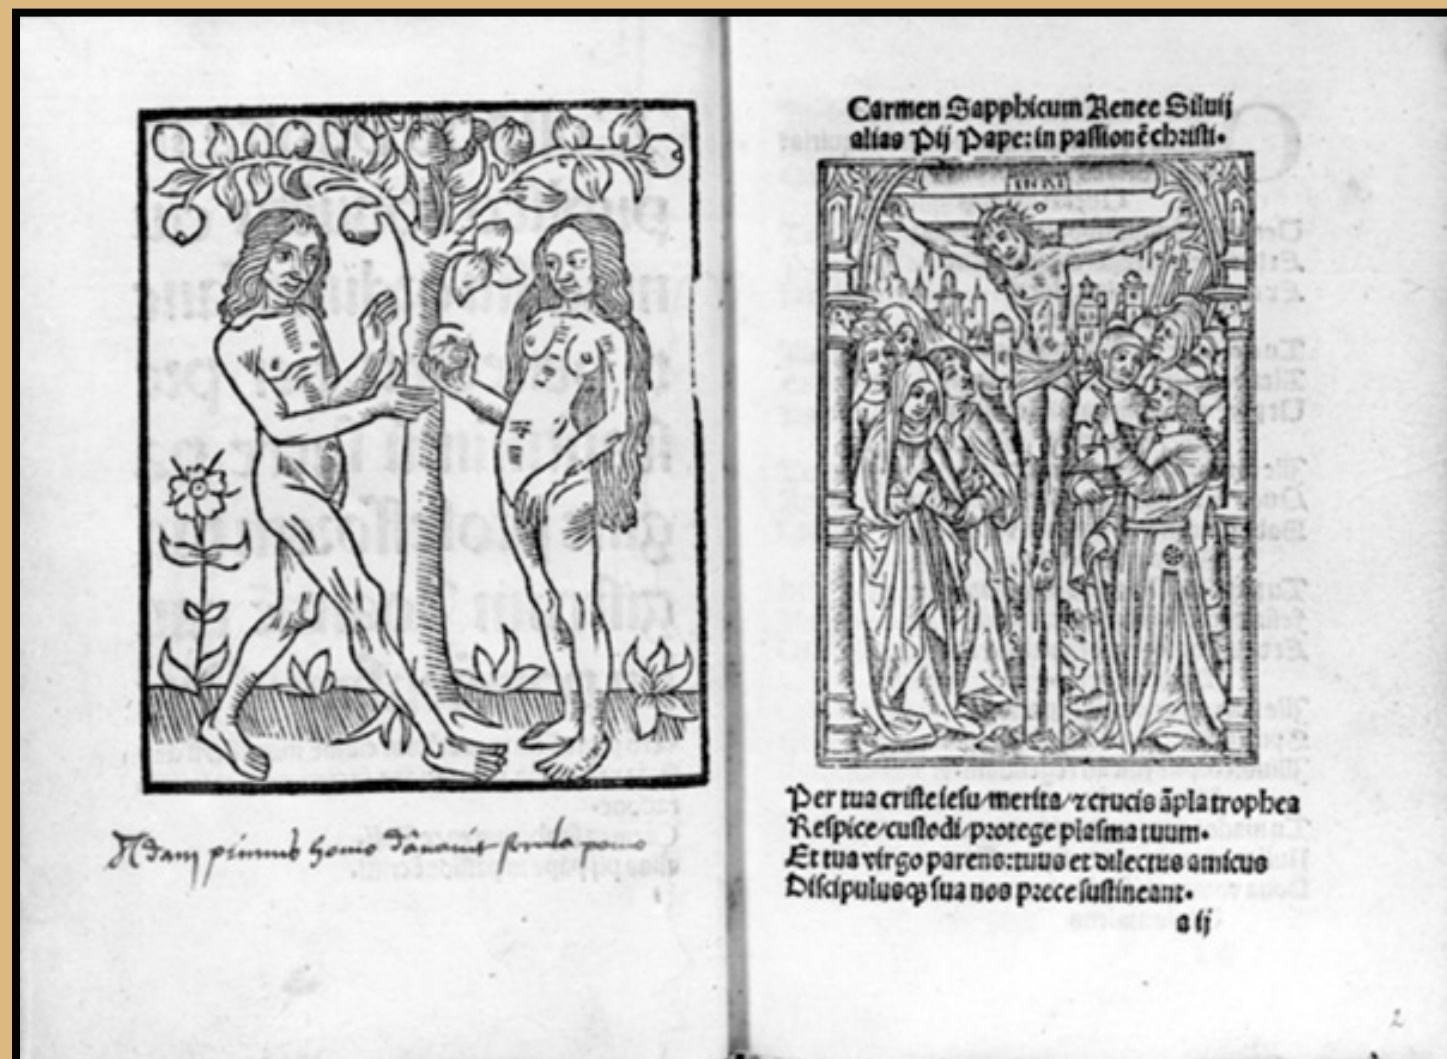 Adam primus homo damnauit secula pomo
Carmen Sapphicum Aenee Siluij
alias Pij Pape: in passionē christi.
INRI
Per tua criste iesu/merita/⁊ crucis āpla trophea
Respice/custodi/protege plasma tuum.
Et tua virgo parens: tuus et dilectus amicus
Discipulusqꝫ sua nos prece sustineant.
a ij
2